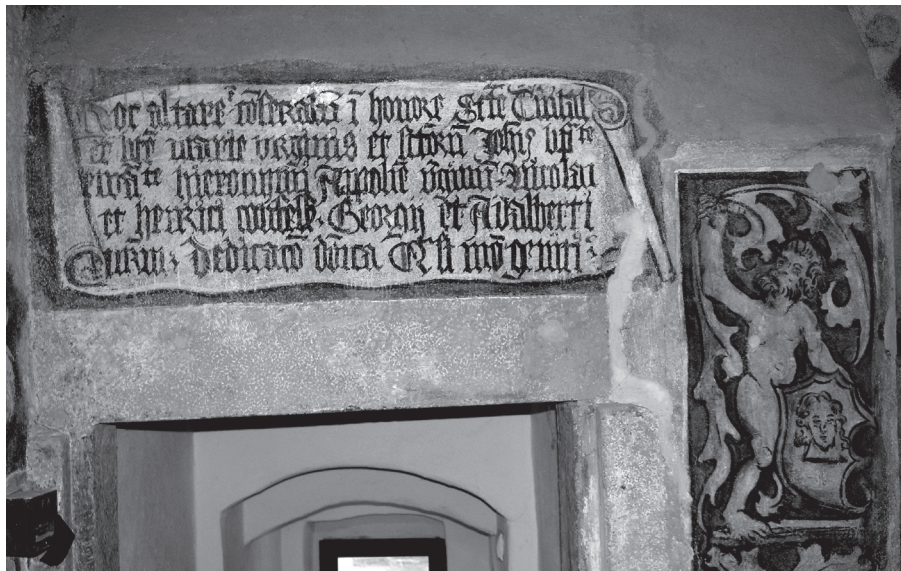 Hoc altare ē cōsecratū ī honore Sctē Trinitat
et btē marie virginis et sctorū Johīs bpte
ewāgte hieronimi Appolīe vginum Nicolai
et heinrici confess. Georgij et Adalberti
mrm. Dedicacō dōica Qasi mō geniti